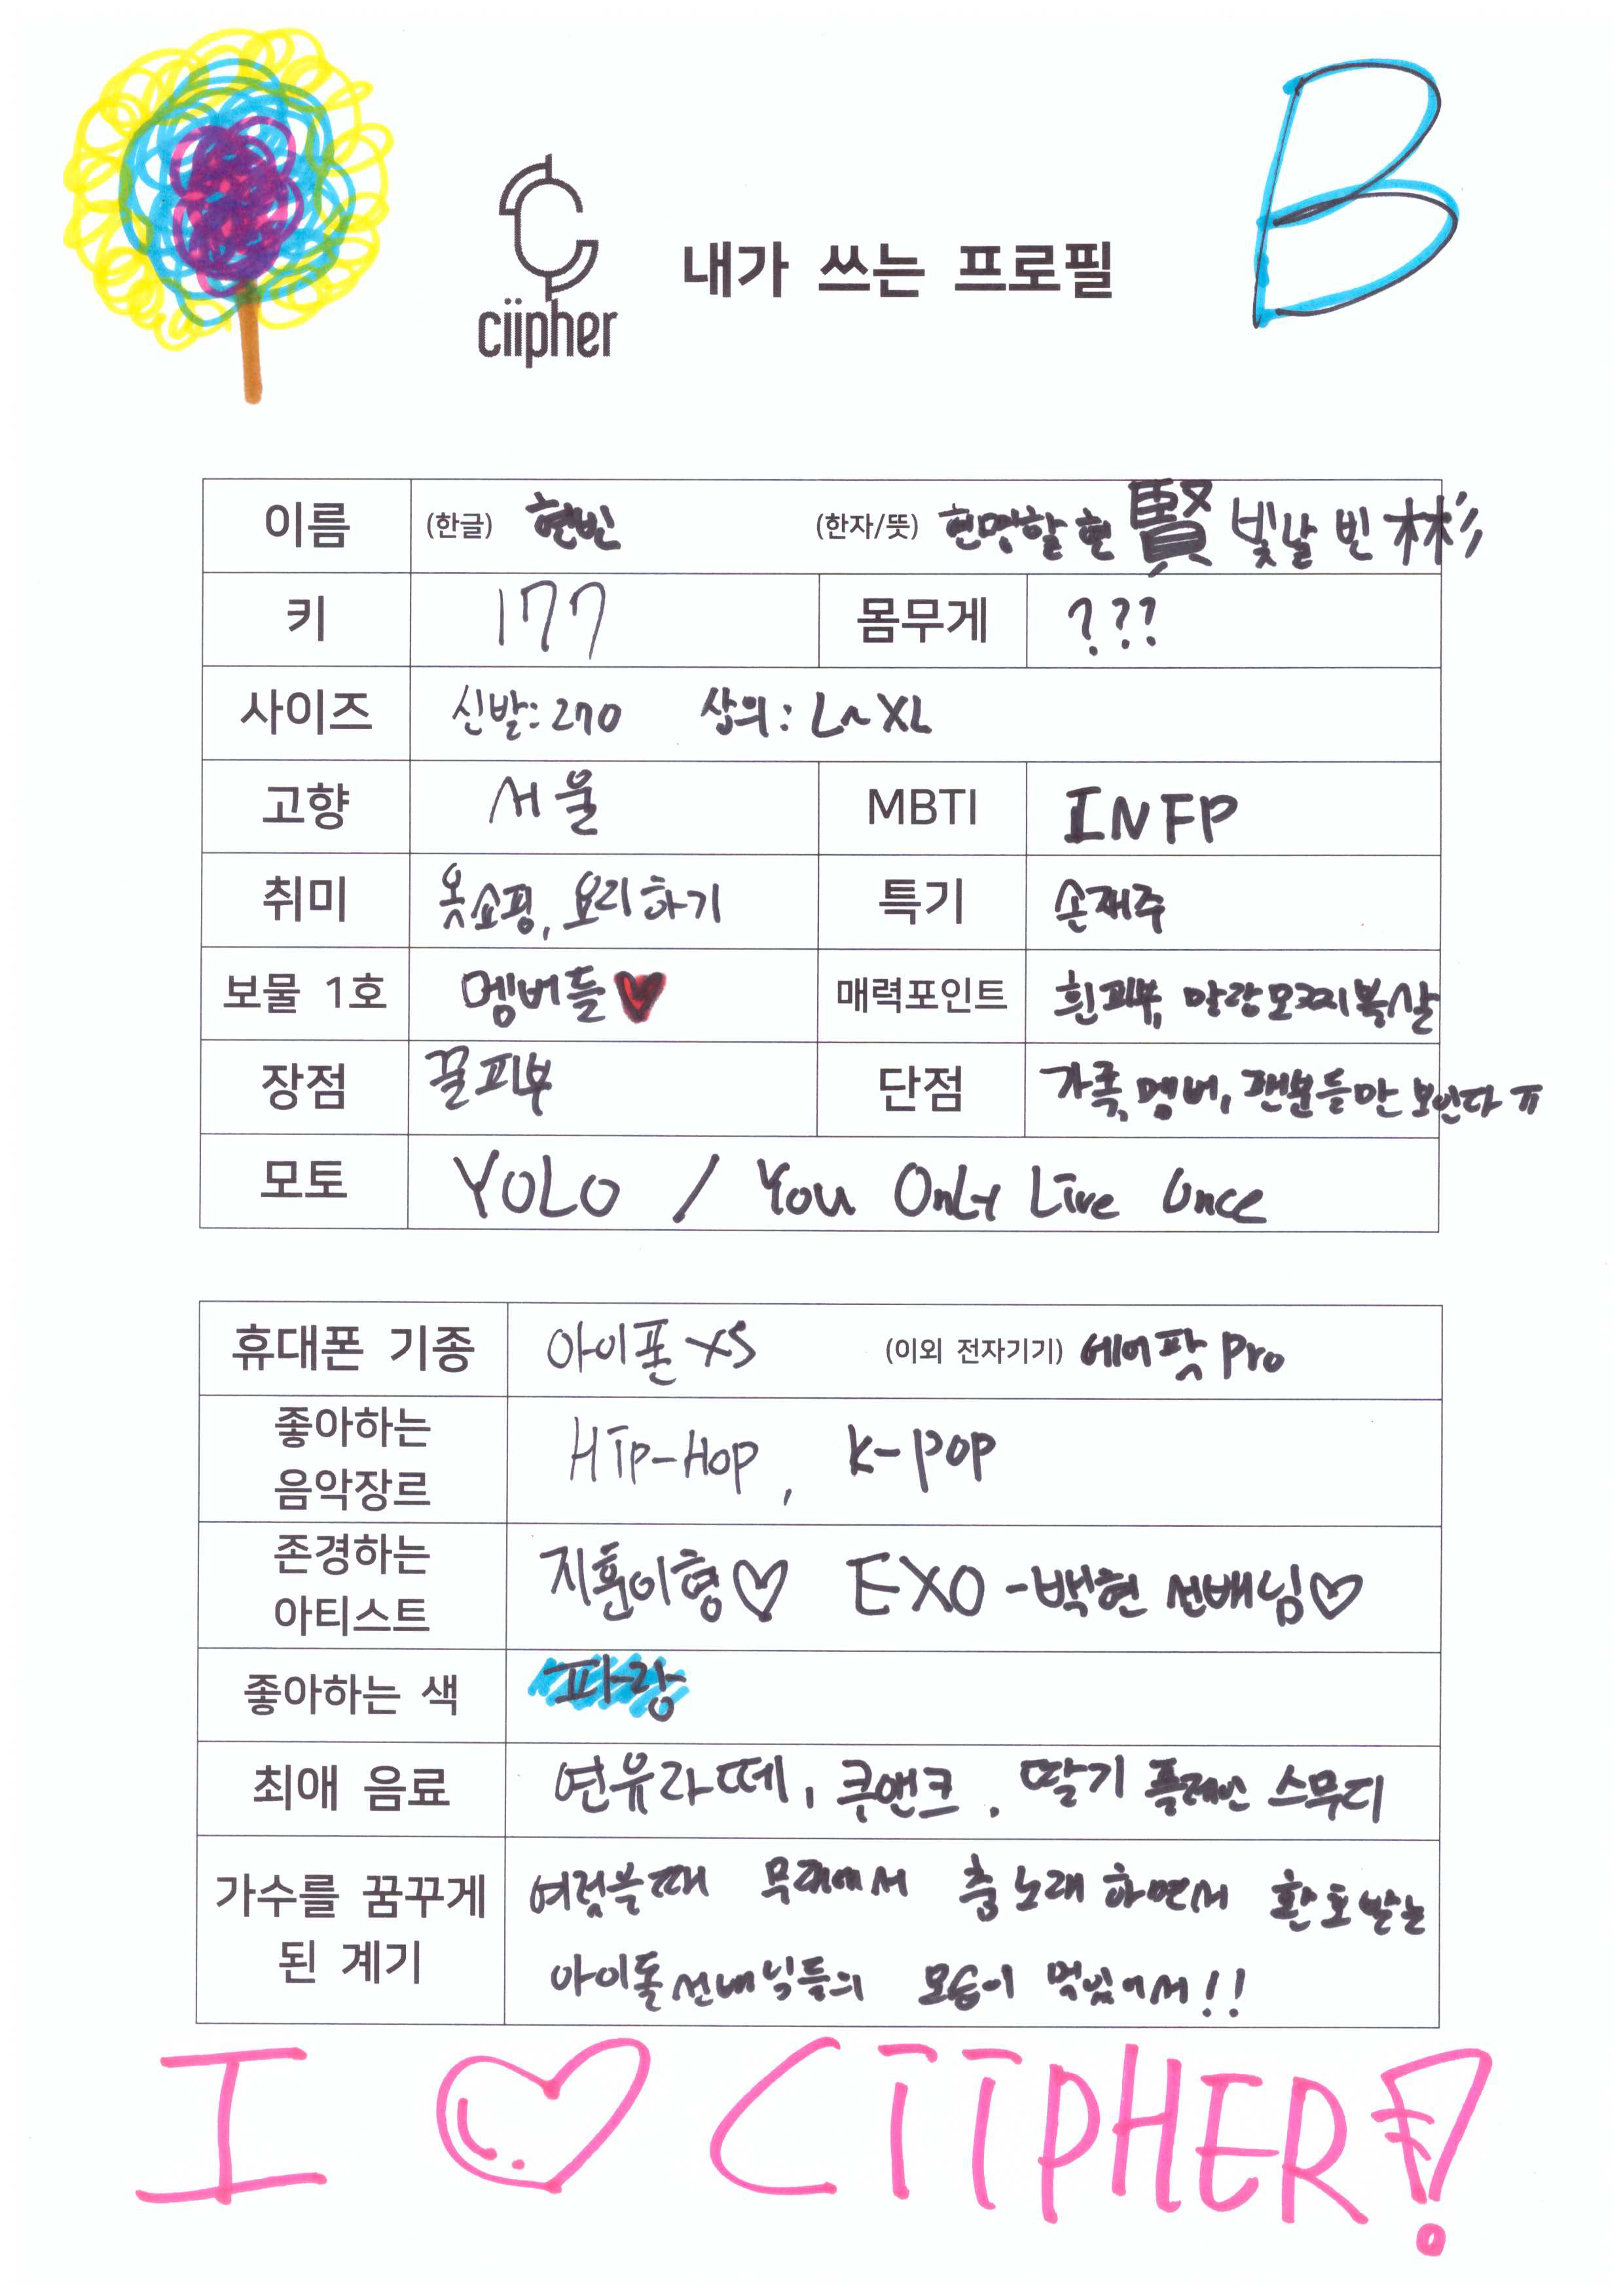 B
ciipher
내가 쓰는 프로필
이름 (한글) 현빈 (한자/뜻) 현명할 현 賢 빛날 빈 彬
키 177 몸무게 ???
사이즈 신발: 270 상의: L~XL
고향 서울 MBTI INFP
취미 옷쇼핑, 요리하기 특기 손재주
보물 1호 멤버들♥ 매력포인트 흰피부, 말랑모찌볼살
장점 꿀피부 단점 가족, 멤버, 팬분들만 보인다 ㅠ
모토 YOLO / You Only Live Once
휴대폰 기종 아이폰 XS (이외 전자기기) 에어팟 pro
좋아하는
음악장르 HIp-Hop, K-pop
존경하는
아티스트 지훈이형♡ EXO - 백현 선배님♡
좋아하는 색 파랑
최애 음료 연유라떼, 쿠앤크, 딸기 플레인 스무디
가수를 꿈꾸게 여렸을때 무대에서 춤 노래 하면서 환호받는
된 계기 아이돌선배님들의 모습이 멋있어서!!
I ♡ CIIPHER!